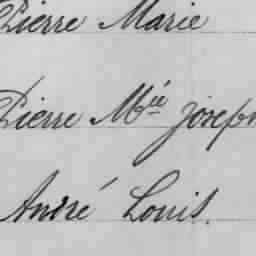 Pierre Marie
Pierre Mie Joseph
André Louis.